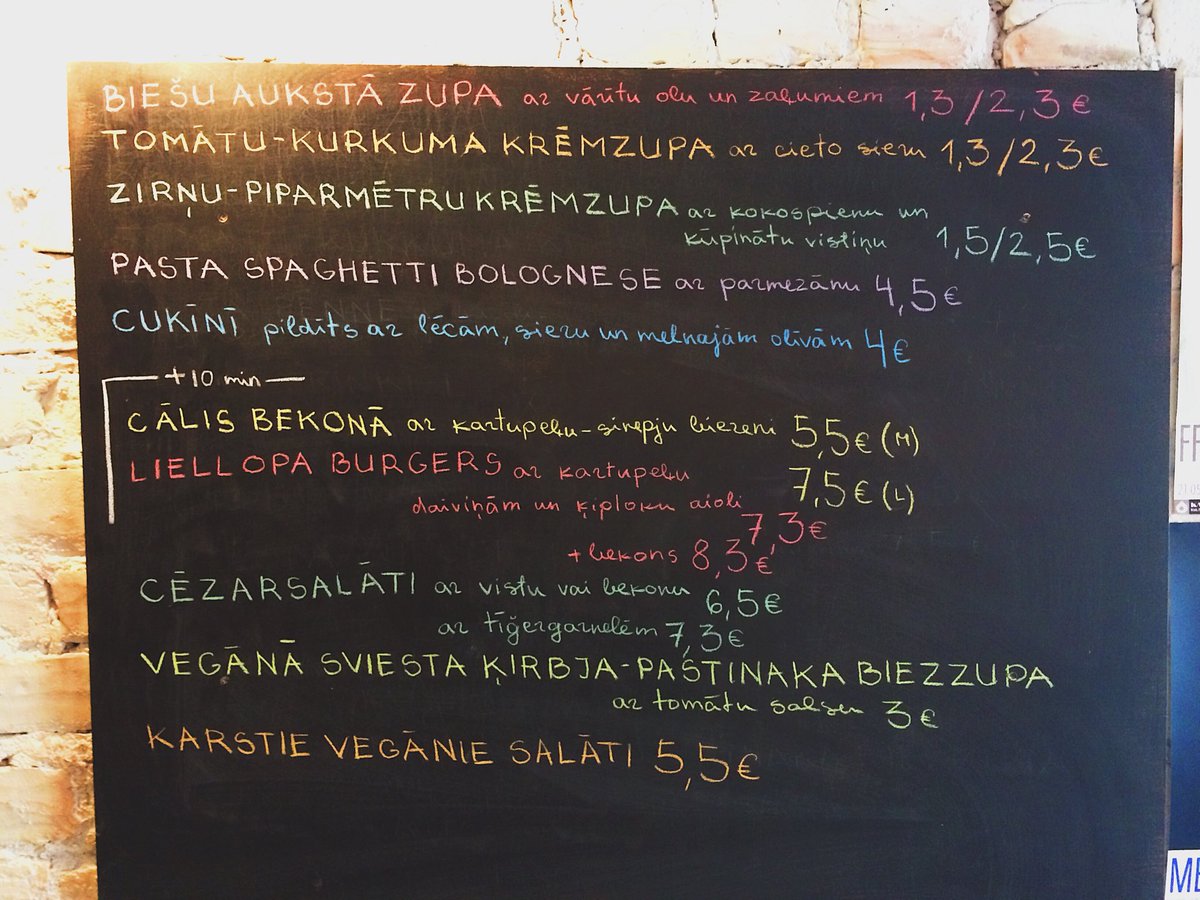 BIEŠU AUKSTĀ ZUPA ar vārītu olu un zaļumiem 1,3/2,3€
TOMĀTU-KURKUMA KRĒMZUPA ar cieto sieru 1,3/2,3€
ZIRŅU-PIPARMĒTRU KRĒMZUPA ar kokospienu un
kūpinātu vistiņu 1,5/2,5€
PASTA SPAGHETTI BOLOGNESE ar parmezānu 4,5€
CUKĪNĪ pildīts ar lēcām, sieru un melnajām olīvām 4€
+10 min
CĀLIS BEKONĀ ar kartupeļu-sīrepju biezeni 5,5€ (M)
LIELLOPA BURGERS ar kartupeļu 7,5€ (L)
daiviņām un ķiploku aioli
7,3€
+ bekons 8,3€
CĒZARSALĀTI ar vistu vai bekonu 6,5€
ar tīģergarnelēm 7,3€
VEGĀNĀ SVIESTA ĶIRBJA-PASTINAKA BIEZZUPA
ar tomātu salsu 3€
KARSTIE VEGĀNIE SALĀTI 5,5€
FF
ME